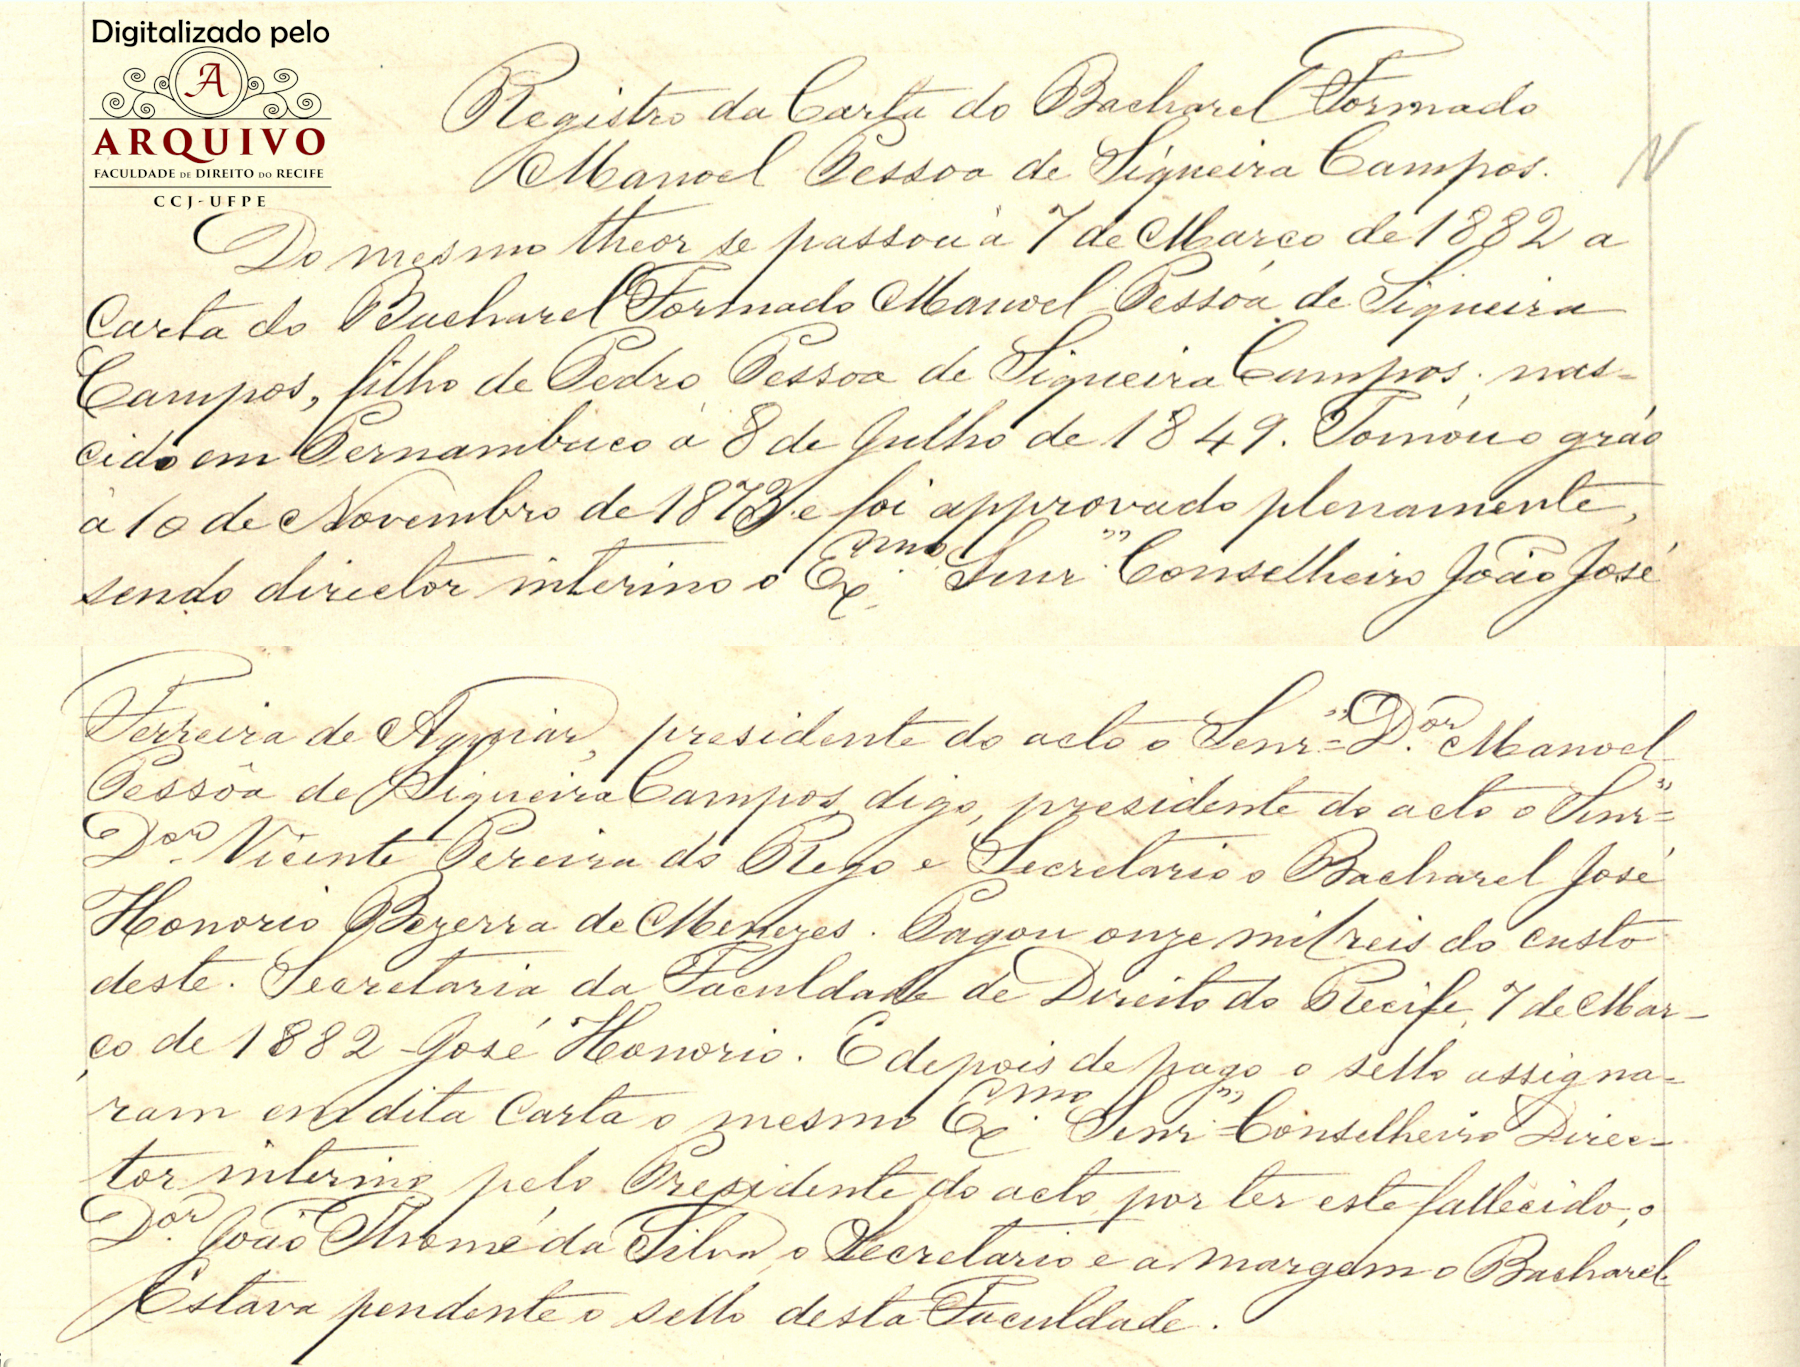 Digitalizado pelo
A
ARQUIVO
FACULDADE DE DIREITO DO RECIFE
CCJ-UFPE
Registro da Carta do Bacharel Formado
Manoel Pessoa de Siqueira Campos.
N
Do mesmo theor se passou à 7 de Março de 1882 a
Carta do Bacharel Formado Manoel Pessôa de Siqueira
Campos, filho de Pedro Pessoa de Siqueira Campos, nas-
cido em Pernambuco à 8 de Julho de 1849. Tomou o gráo
à 10 de Novembro de 1873 e foi approvado plenamente,
sendo director interino o Exmo. Senr" Conselheiro João José
Ferreira de Aguiar, presidente do acto o Senr" Dor. Manoel
Pessôa de Siqueira Campos, digo, presidente do acto o Senr"
Dor. Vicente Pereira do Rego e Secretario o Bacharel José
Honorio Bezerra de Menezes. Pagou onze mil reis do custo
deste. Secretaria da Faculdade de Direito do Recife, 7 de Mar-
ço de 1882 - José Honorio. E depois de pago o sello assigna-
ram em dita Carta o mesmo Exmo. Senr" Conselheiro Direc-
tor interino pelo Presidente do acto, por ter este fallecido, o
Dor. João Thomé da Silva, o Secretario e a margem o Bacharel.
Estava pendente o sello desta Faculdade.